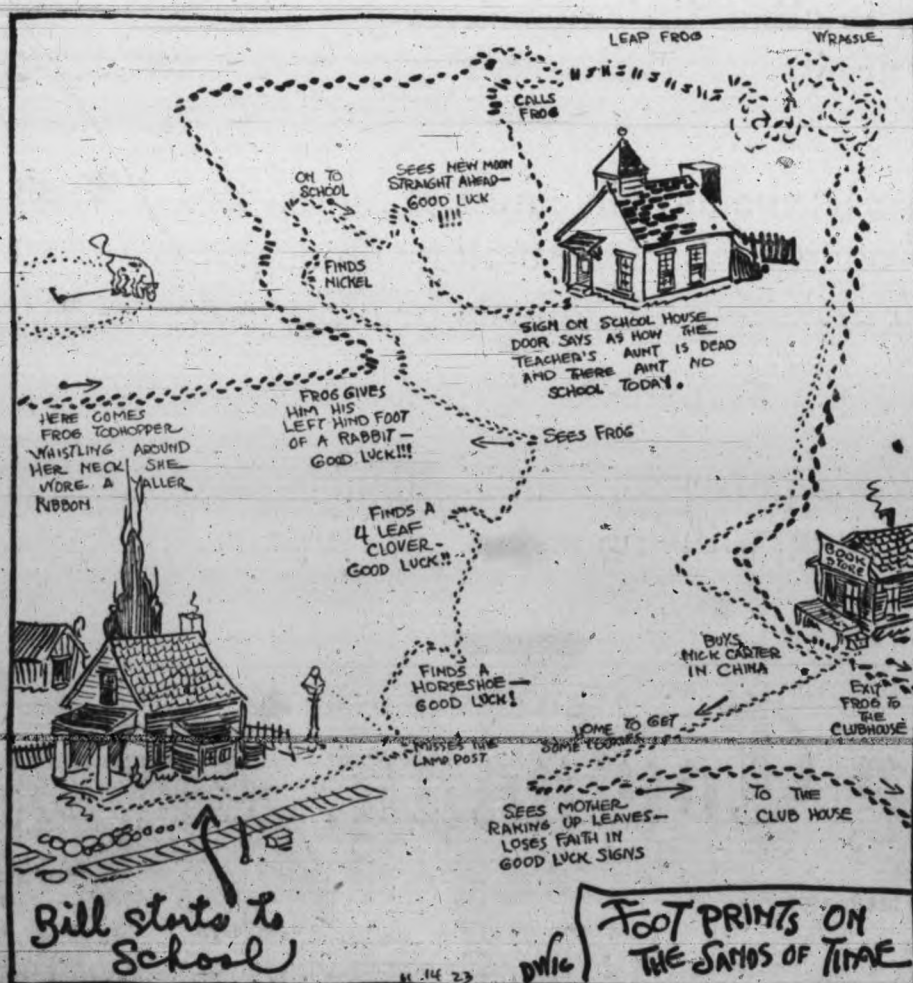 LEAP FROG
WRASSLE
CALLS
FROG
ON TO
SCHOOL
SEES NEW MOON
STRAIGHT AHEAD—
GOOD LUCK
!!!!
FINDS
NICKEL
SIGN ON SCHOOL HOUSE
DOOR SAYS AS HOW THE
TEACHER'S AUNT IS DEAD
AND THERE AINT NO
SCHOOL TODAY.
HERE COMES
FROG TODHOPPER
WHISTLING AROUND
HER NECK SHE
WORE A YALLER
RIBBON
FROG GIVES
HIM HIS
LEFT HIND FOOT
OF A RABBIT—
GOOD LUCK!!!
SEES FROG
FINDS A
4 LEAF
CLOVER—
GOOD LUCK!!
BOOK
STORE
FINDS A
HORSESHOE—
GOOD LUCK!
BUYS
NICK CARTER
IN CHINA
EXIT
FROG TO
THE
CLUBHOUSE
MISSES THE
LAMP POST
HOME TO GET
SOME
SEES MOTHER
RAKING UP LEAVES—
LOSES FAITH IN
GOOD LUCK SIGNS
TO THE
CLUB HOUSE
Bill starts to
School
14 23
DWIG
FOOT PRINTS ON
THE SANDS OF TIME